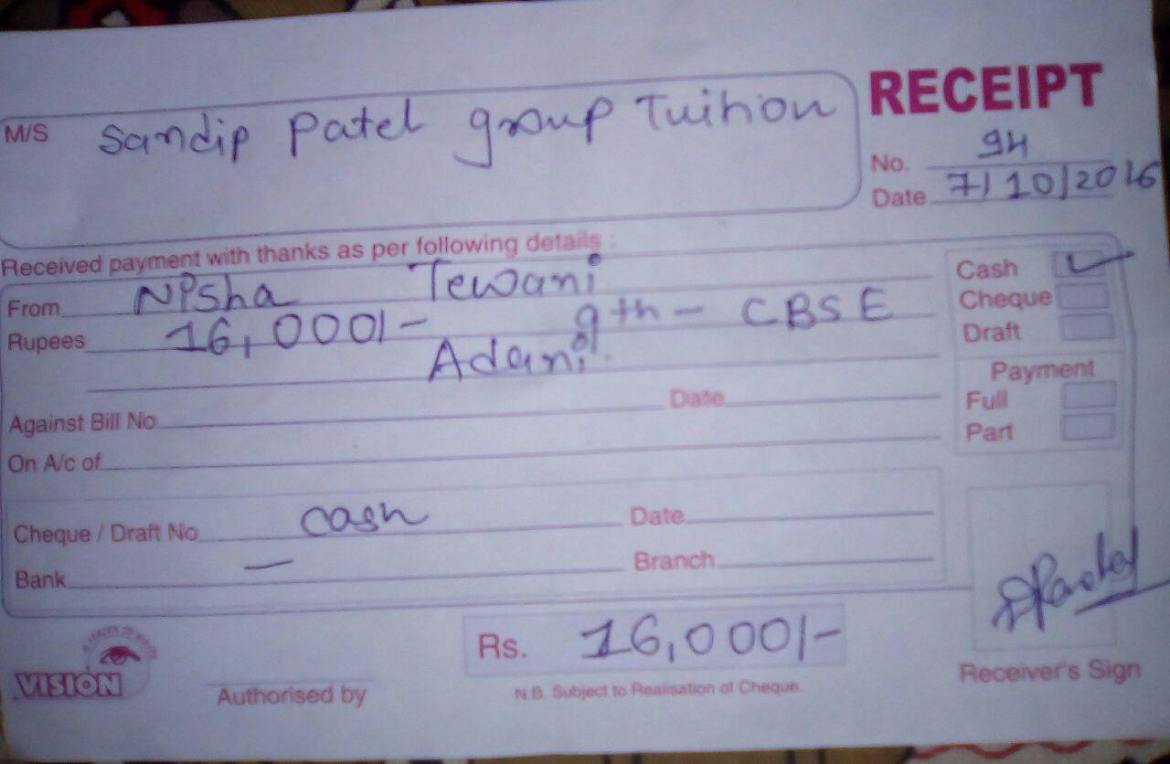 RECEIPT
M/S Sandip Patel group Tuition
No. 94
Date 7/10/2016
Received payment with thanks as per following details :
From Nisha Tewani
Rupees 16,000/- 9th - CBSE
Adani
Cash ✓
Cheque
Draft
Payment
Full
Part
Against Bill No. Date
On A/c of
Cheque / Draft No. cash Date
Bank — Branch
Rs. 16,000/-
VISION
Authorised by
N.B. Subject to Realisation of Cheque.
Receiver's Sign